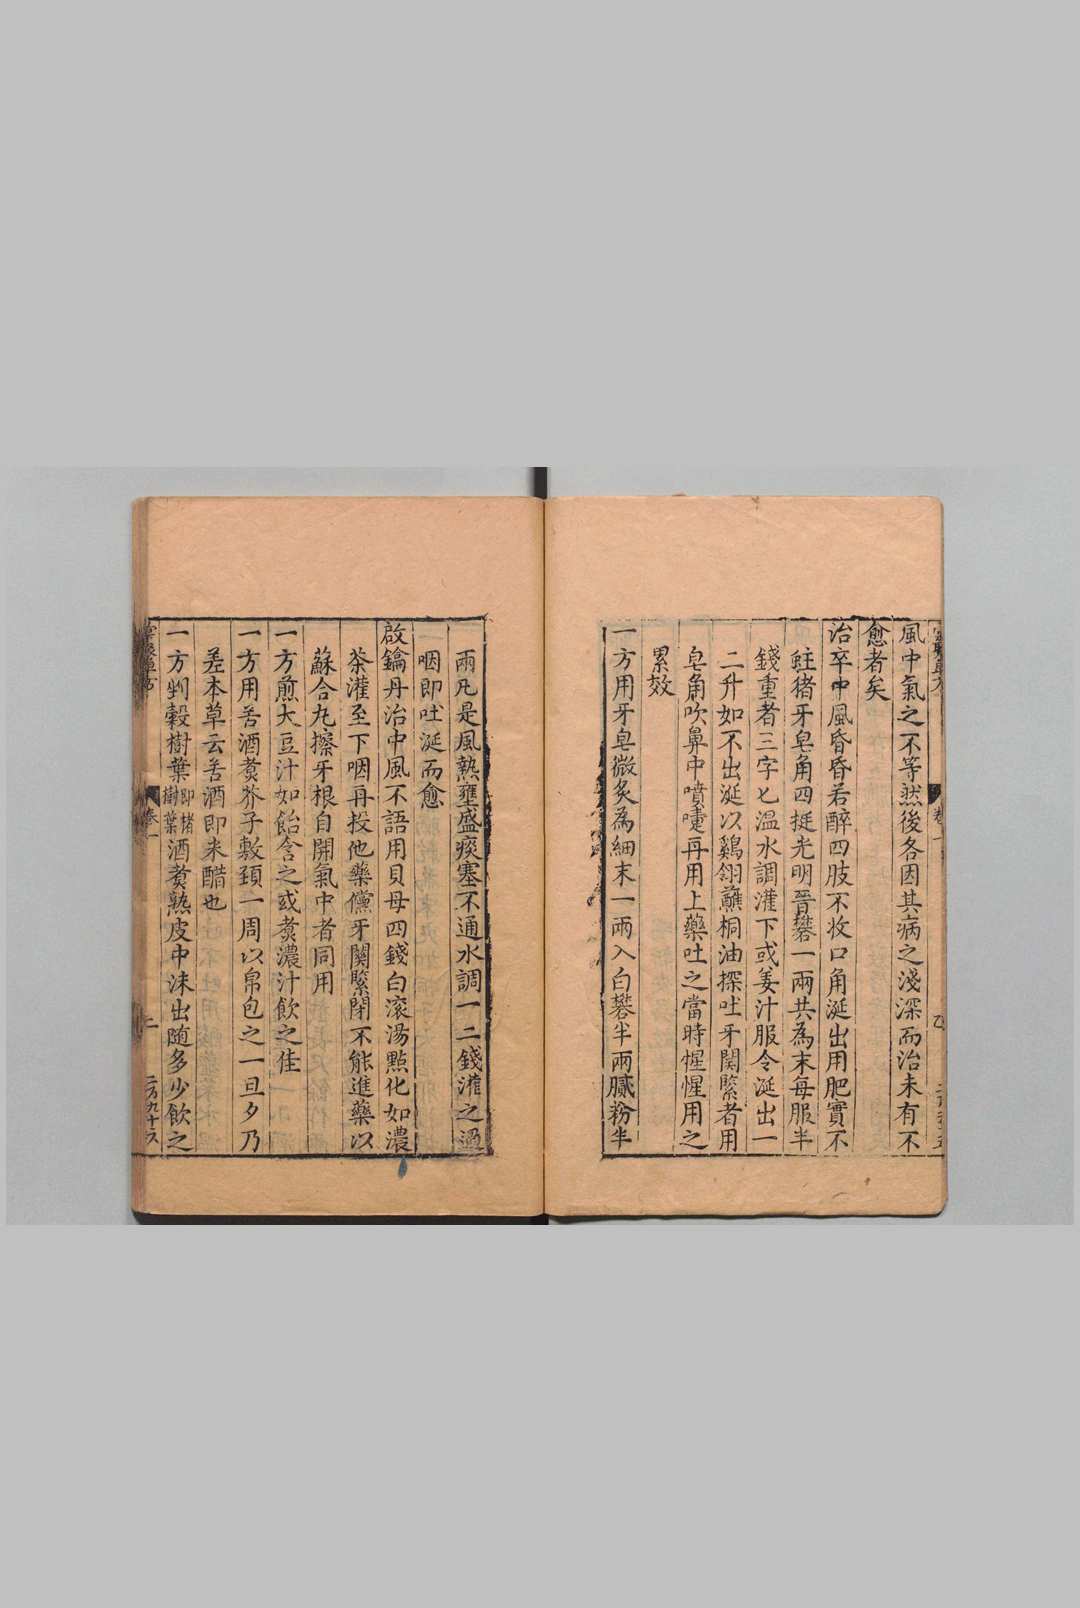 風中氣之不等然後各因其病之淺深而治未有不
愈者矣
治卒中風昏昏若醉四肢不收口角涎出用肥實不
蛀猪牙皂角四挺光明晉礬一兩共為末每服半
錢重者三字匕温水調灌下或姜汁服令涎出一
二升如不出涎以鷄翎蘸桐油探吐牙関緊者用
皂角吹鼻中噴嚏再用上藥吐之當時惺惺用之
累效
一方用牙皂微炙為細末一兩入白礬半兩膩粉半
兩凡是風熱壅盛痰塞不通水調一二錢灌之過
咽即吐涎而愈
啟鑰丹治中風不語用貝母四錢白滚湯㸃化如濃
茶灌至下咽再投他藥儻牙関緊閉不能進藥以
蘇合丸擦牙根自開氣中者同用
一方煎大豆汁如飴含之或煑濃汁飲之佳
一方用苦酒煑芥子敷頚一周以帛包之一旦夕乃
差本草云苦酒即米醋也
一方剉榖樹葉即楮樹葉酒煑熟皮中沫出随多少飲之
卷一
二